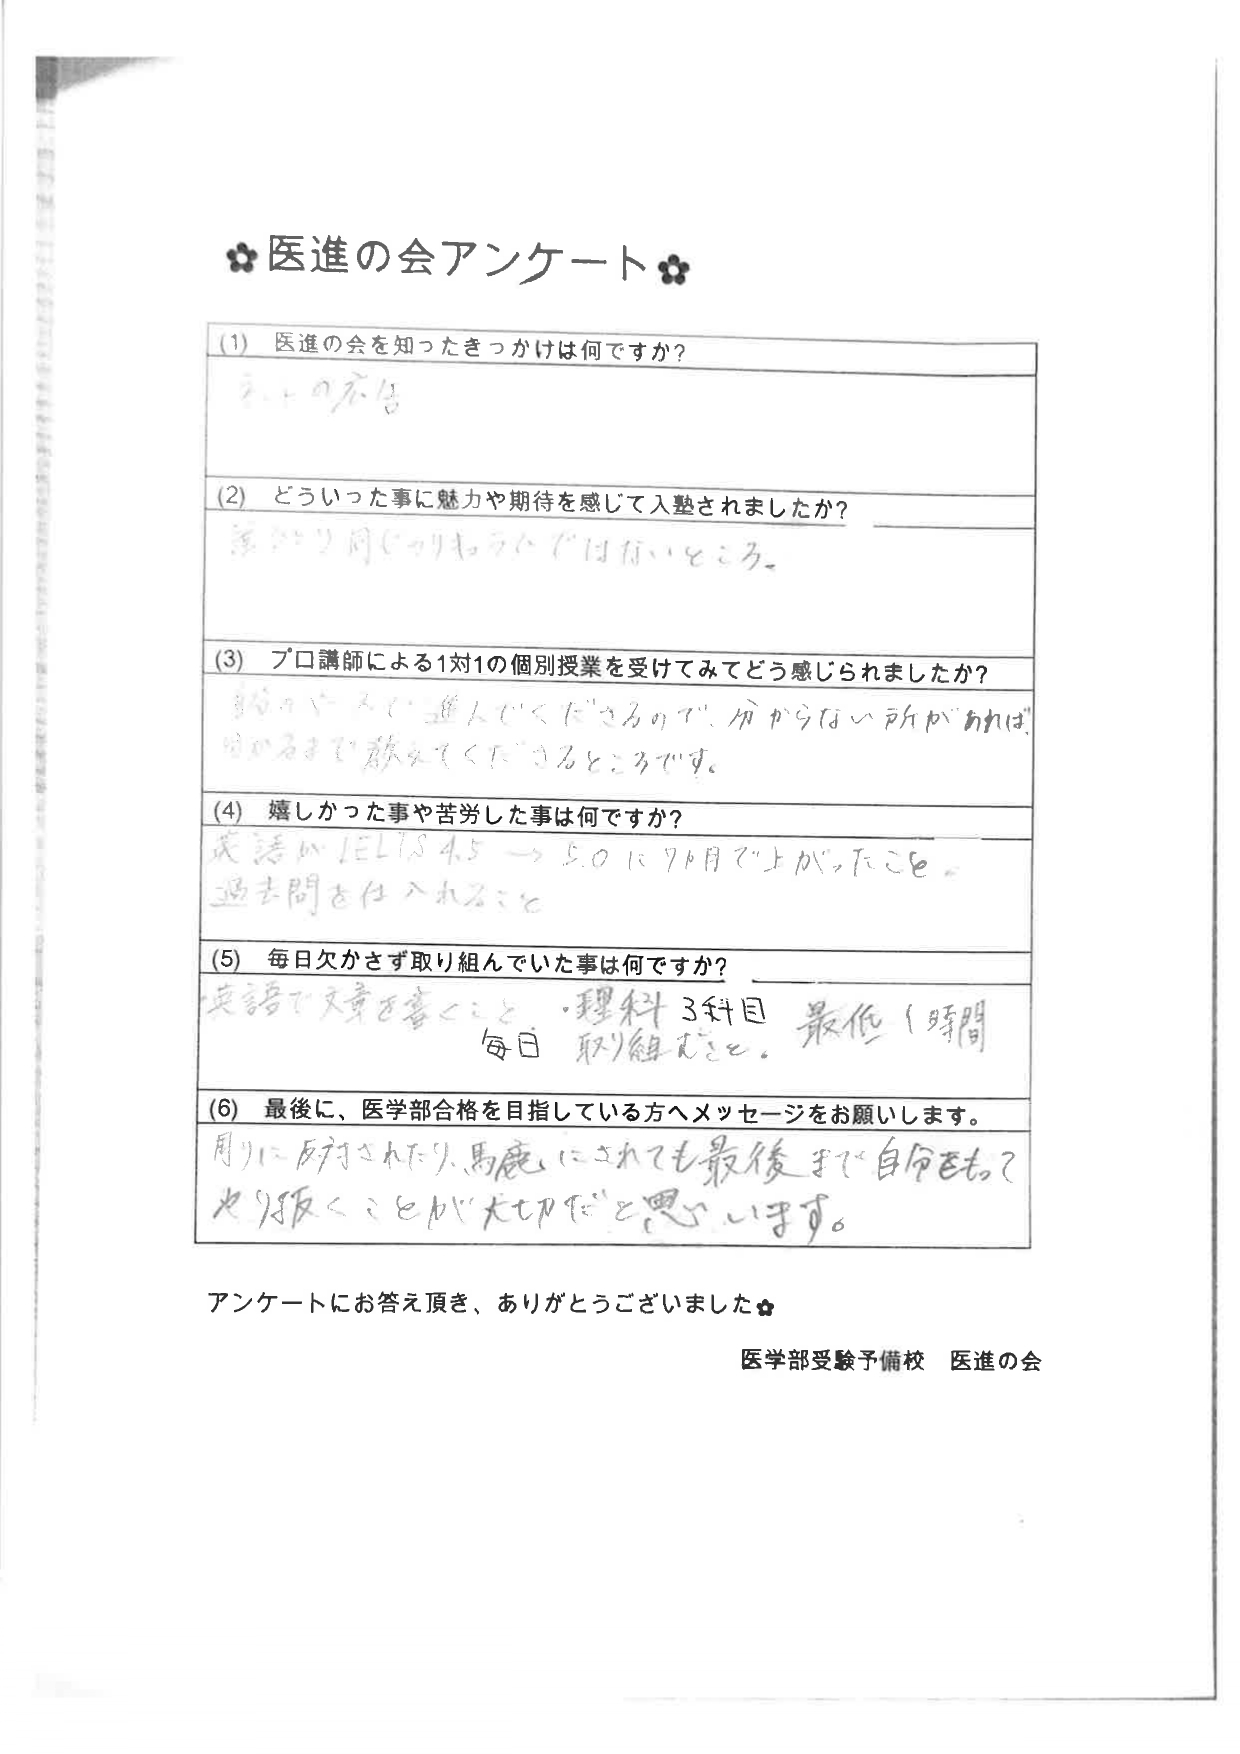 ✿医進の会アンケート✿
(1) 医進の会を知ったきっかけは何ですか?
ネットの広告
(2) どういった事に魅力や期待を感じて入塾されましたか?
同じカリキュラムではないところ。
(3) プロ講師による1対1の個別授業を受けてみてどう感じられましたか?
のペースで進んでくださるので、分からない所があれば、
分かるまで教えてくださるところです。
(4) 嬉しかった事や苦労した事は何ですか?
英語がIELTS 4.5 → 5.0に7ヶ月で上がったこと。
過去問を仕入れること
(5) 毎日欠かさず取り組んでいた事は何ですか?
・英語で文章を書くこと ・理科3科目 最低1時間
毎日 取り組むこと。
(6) 最後に、医学部合格を目指している方へメッセージをお願いします。
周りに反対されたり、馬鹿にされても最後まで自分をもって
やり抜くことが大切だと思います。
アンケートにお答え頂き、ありがとうございました✿
医学部受験予備校 医進の会